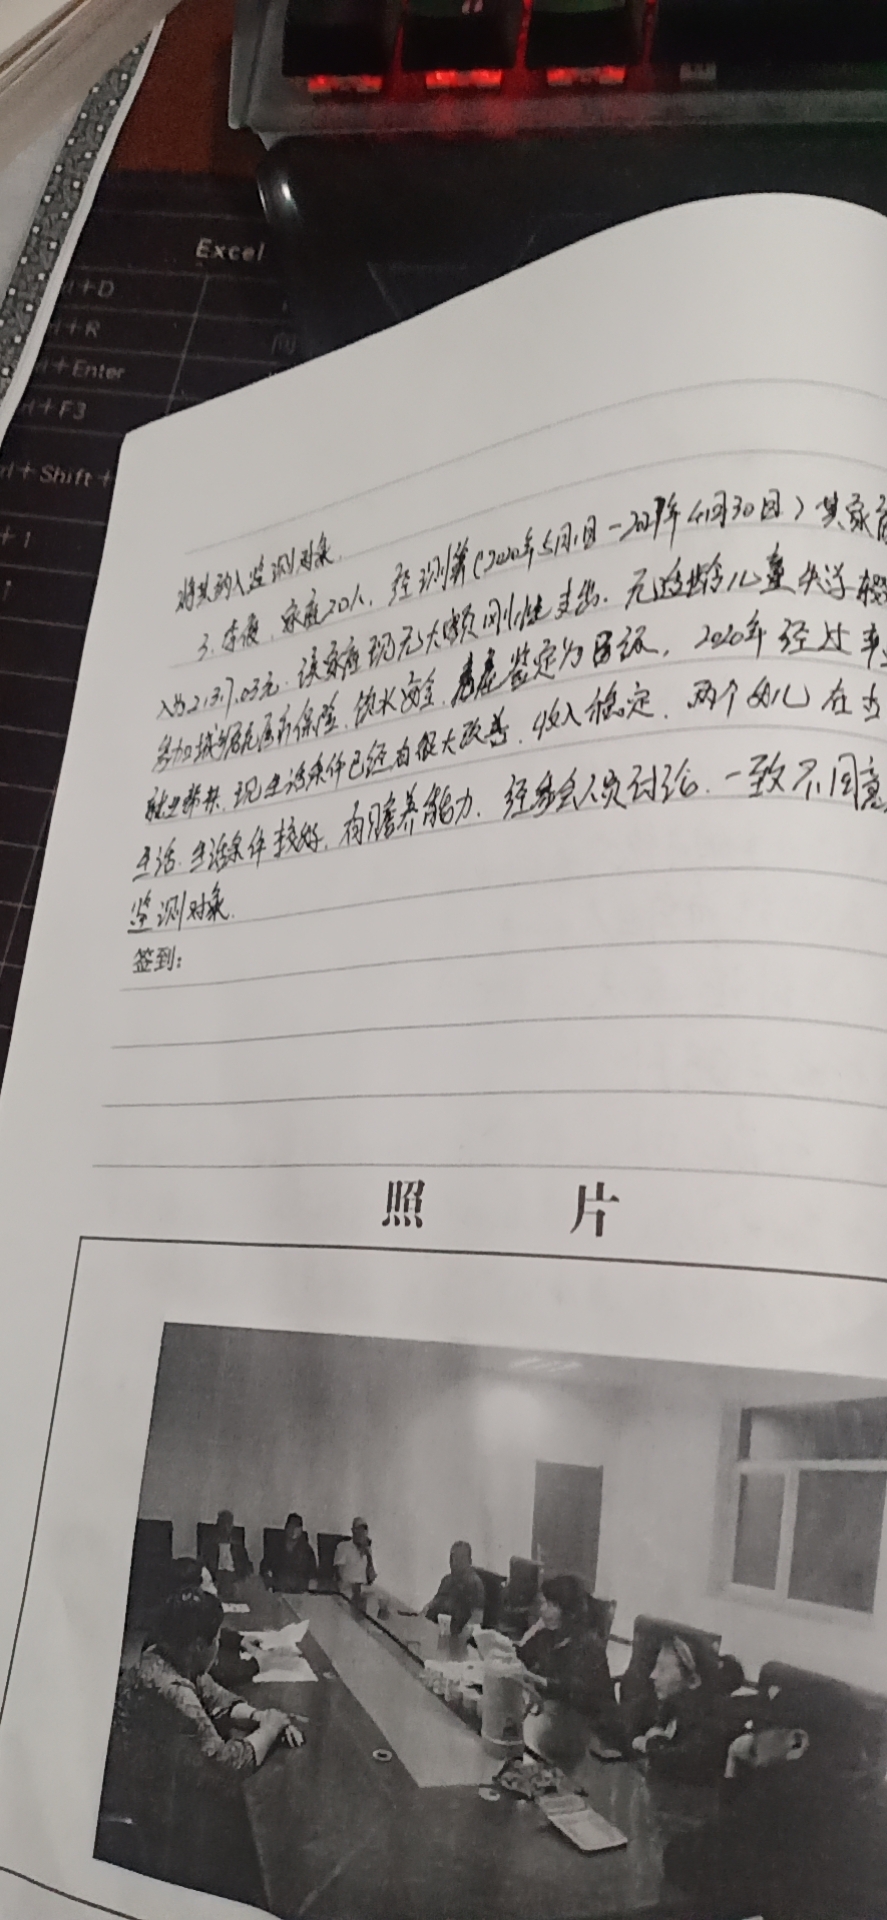 Excel
+D
+R
+Enter
+F3
+Shift+
+1
将其纳入监测对象.
3. 家庭20人, 经测算(2020年5月1日-2021年4月30日)其家庭
入为21317.03元. 该家庭现无大额刚性支出. 无适龄儿童失学辍
参加城乡居民医疗保险, 饮水安全, 鉴定为B级, 2020年经过
就业帮扶, 现生活条件已经有很大改善, 收入稳定, 两个女儿在
生活. 生活条件较好, 有赡养能力. 经参会人员讨论. 一致不同意
监测对象.
签到:
照 片